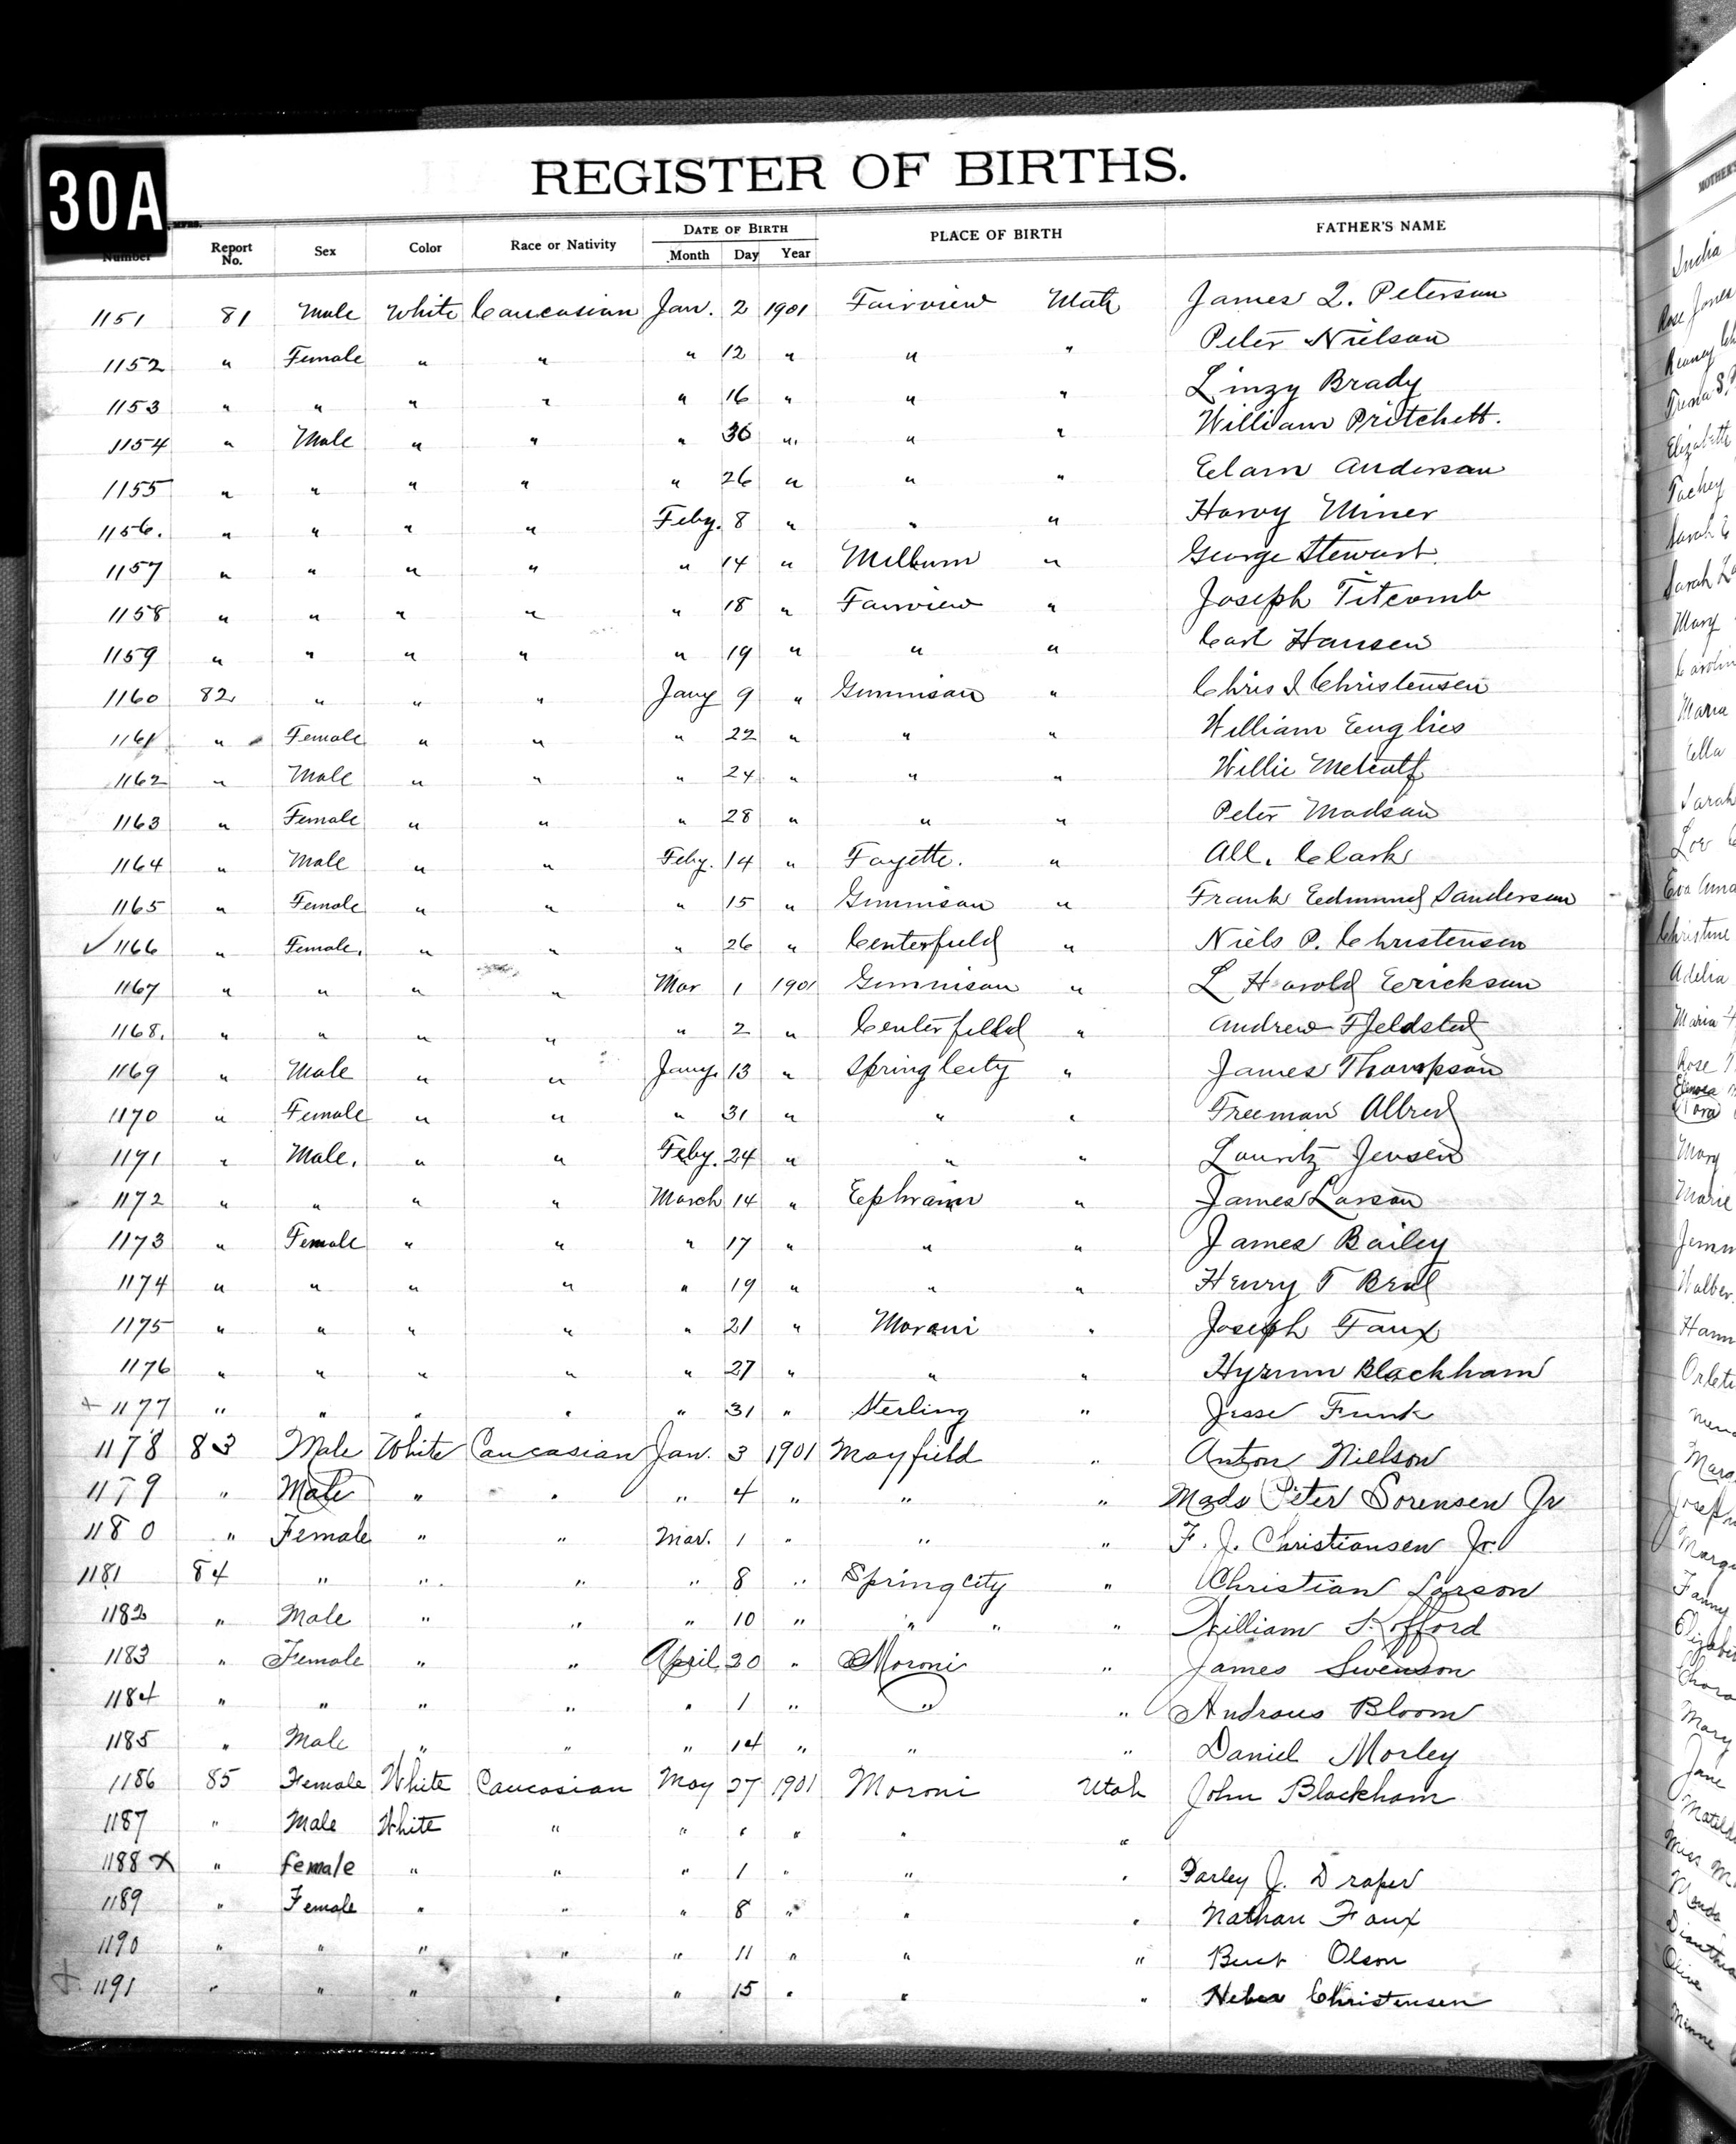 30A
REGISTER OF BIRTHS.
Number Report No. Sex Color Race or Nativity DATE OF BIRTH Month Day Year PLACE OF BIRTH FATHER'S NAME
1151 81 Male White Caucasian Jan. 2 1901 Fairview Utah James L. Peterson
1152 " Female " " " 12 " " " Peter Nielson
1153 " " " " " 16 " " " Linzy Brady
1154 " Male " " " 30 " " " William Pritchett.
1155 " " " " " 26 " " " Elam Anderson
1156. " " " " Feby. 8 " " " Harvy Miner
1157 " " " " " 14 " Milburn " George Stewart.
1158 " " " " " 18 " Fairview " Joseph Titcomb
1159 " " " " " 19 " " " Carl Hansen
1160 82 " " " Jany 9 " Gunnison " Chris I Christensen
1161 " Female " " " 22 " " " William
1162 " Male " " " 24 " " " Willie Metcalf
1163 " Female " " " 28 " " " Peter Madsen
1164 " Male " " Feby. 14 " Fayette. " All. Clark
1165 " Female " " " 15 " Gunnison " Frank Edmund Sanderson
✓ 1166 " Female. " " " 26 " Centerfield " Niels P. Christensen
1167 " " " " Mar 1 1901 Gunnison " L Harold Erickson
1168. " " " " " 2 " Centerfield " Andrew Fjeldsted
1169 " Male " " Jany. 13 " Spring City " James Thompson
1170 " Female " " " 31 " " " Freeman Allred
1191 " Male. " " Feby. 24 " " " Lauritz Jensen
1172 " " " " March 14 " Ephraim " James Larson
1173 " Female " " " 17 " " " James Bailey
1174 " " " " " 19 " " " Henry T Beal
1175 " " " " " 21 " Moroni " Joseph Faux
1176 " " " " " 27 " " " Hyrum Blackham
+ 1177 " " " " " 31 " Sterling " Jesse Funk
1178 83 Male White Caucasian Jan. 3 1901 Mayfield " Anton Nielson
1179 " Male " " " 4 " " " Mads Peter Sorensen Jr
1180 " Female " " Mar. 1 " " " F. J. Christiansen Jr.
1181 84 " " " " 8 " Spring City " Christian Larson
1182 " Male " " " 10 " " " " William Kofford
1183 " Female " " April 30 " Moroni " James Swenson
1184 " " " " " 1 " " " Andraus Bloom
1185 " Male " " " 14 " " " Daniel Morley
1186 85 Female White Caucasian May 27 1901 Moroni Utah John Blackham
1187 " Male White " " " " " "
1188 x " female " " " 1 " " " Parley J. Draper
1189 " Female " " " 8 " " " Nathan Faux
1190 " " " " " 11 " " " Burt Olson
+ 1191 " " " " " 15 " " " Heber Christensen